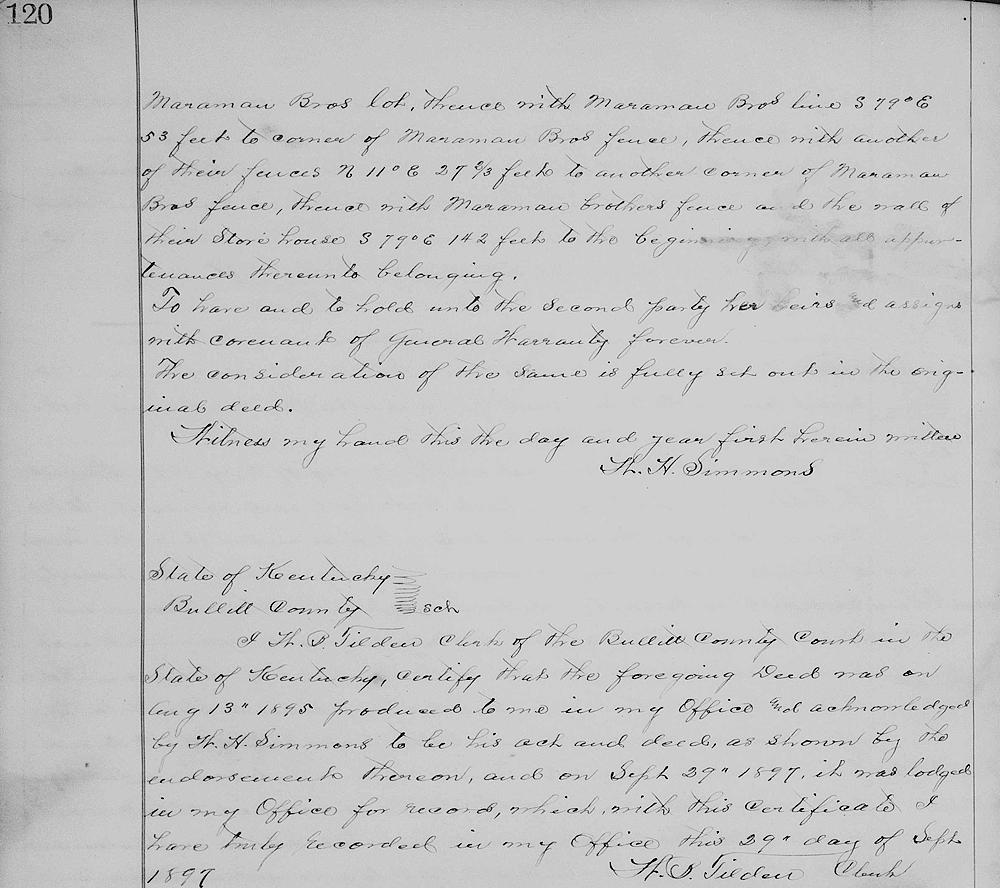 120
Maraman Bros lot, thence with Maraman Bros line S 79° E
53 feet to corner of Maraman Bros fence, thence with another
of their fences N 11° E 27 2/3 feet to another corner of Maraman
Bros fence, thence with Maraman brothers fence and the wall of
their Store house S 79° E 142 feet to the beginning, with all appur-
tenances thereunto belonging.
To have and to hold unto the second party her heirs and assigns
with covenant of General Warranty forever.
The consideration of the same is fully set out in the orig-
inal deed.
Witness my hand this the day and year first herein written
W. H. Simmons
State of Kentucky
Bullitt County sct
I W. P. Tilden Clerk of the Bullitt County Court in the
State of Kentucky, certify that the foregoing Deed was on
Aug 13" 1895 produced to me in my Office and acknowledged
by W. H. Simmons to be his act and deed, as shown by the
endorsement thereon, and on Sept 29" 1897, it was lodged
in my Office for record, which, with this certificate I
have truly recorded in my Office this 29" day of Sept
1897 W. P. Tilden Clerk